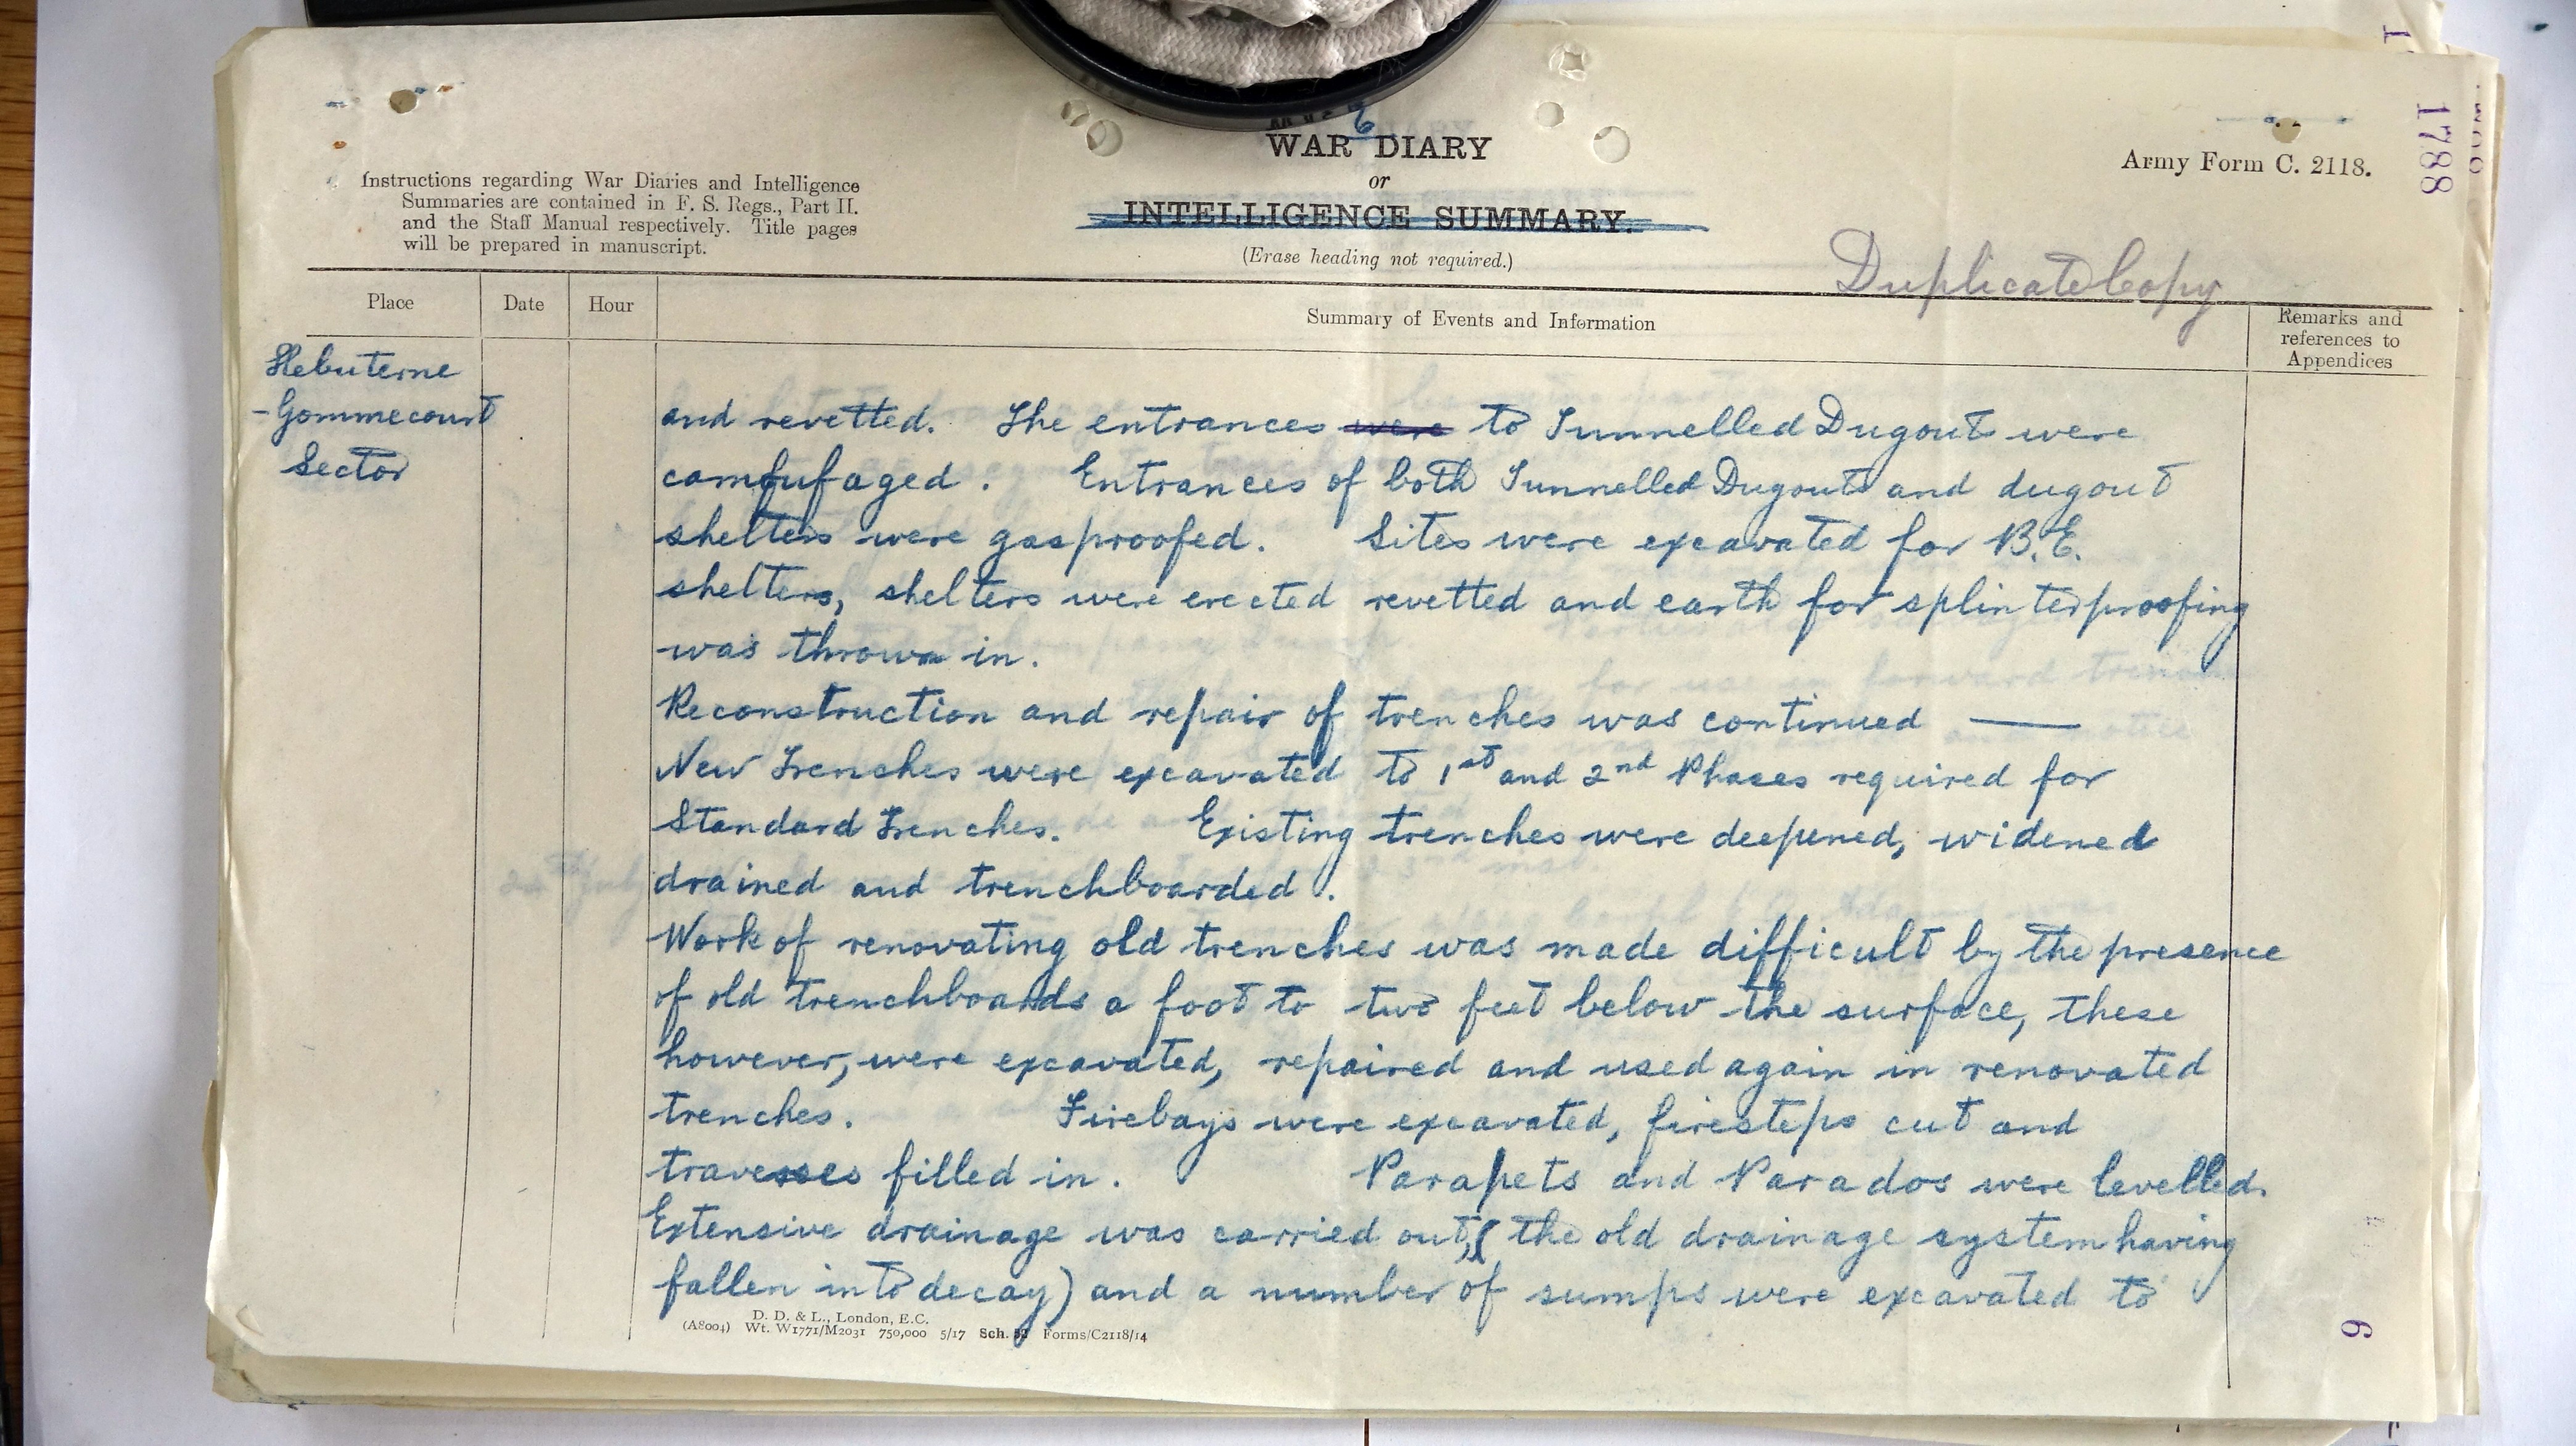 6
WAR DIARY
or
INTELLIGENCE SUMMARY.
(Erase heading not required.)
Instructions regarding War Diaries and Intelligence
Summaries are contained in F. S. Regs., Part II.
and the Staff Manual respectively. Title pages
will be prepared in manuscript.
Army Form C. 2118.
1788
Duplicate Copy
Place
Date
Hour
Summary of Events and Information
Remarks and
references to
Appendices
Hebuterne
- Gommecourt
Sector
and revetted. The entrances were to Tunnelled Dugout were
camfufaged. Entrances of both Tunnelled Dugouts and dugout
shelters were gasproofed. Sites were excavated for B.E.
shelters, shelters were erected revetted and earth for splinterproofing
was thrown in.
Reconstruction and repair of trenches was continued —
New Trenches were excavated to 1st and 2nd Phases required for
Standard Trenches. Existing trenches were deepened, widened
drained and trenchboarded.
Work of renovating old trenches was made difficult by the presence
of old trenchboards a foot to two feet below the surface, these
however, were excavated, repaired and used again in renovated
trenches. Firebays were excavated, firesteps cut and
traverses filled in. Parapets and Parados were levelled.
Extensive drainage was carried out, (the old drainage system having
fallen into decay) and a number of sumps were excavated to
D. D. & L., London, E.C.
(A8004) Wt. W1771/M2031 750,000 5/17 Sch. 52 Forms/C2118/14
6